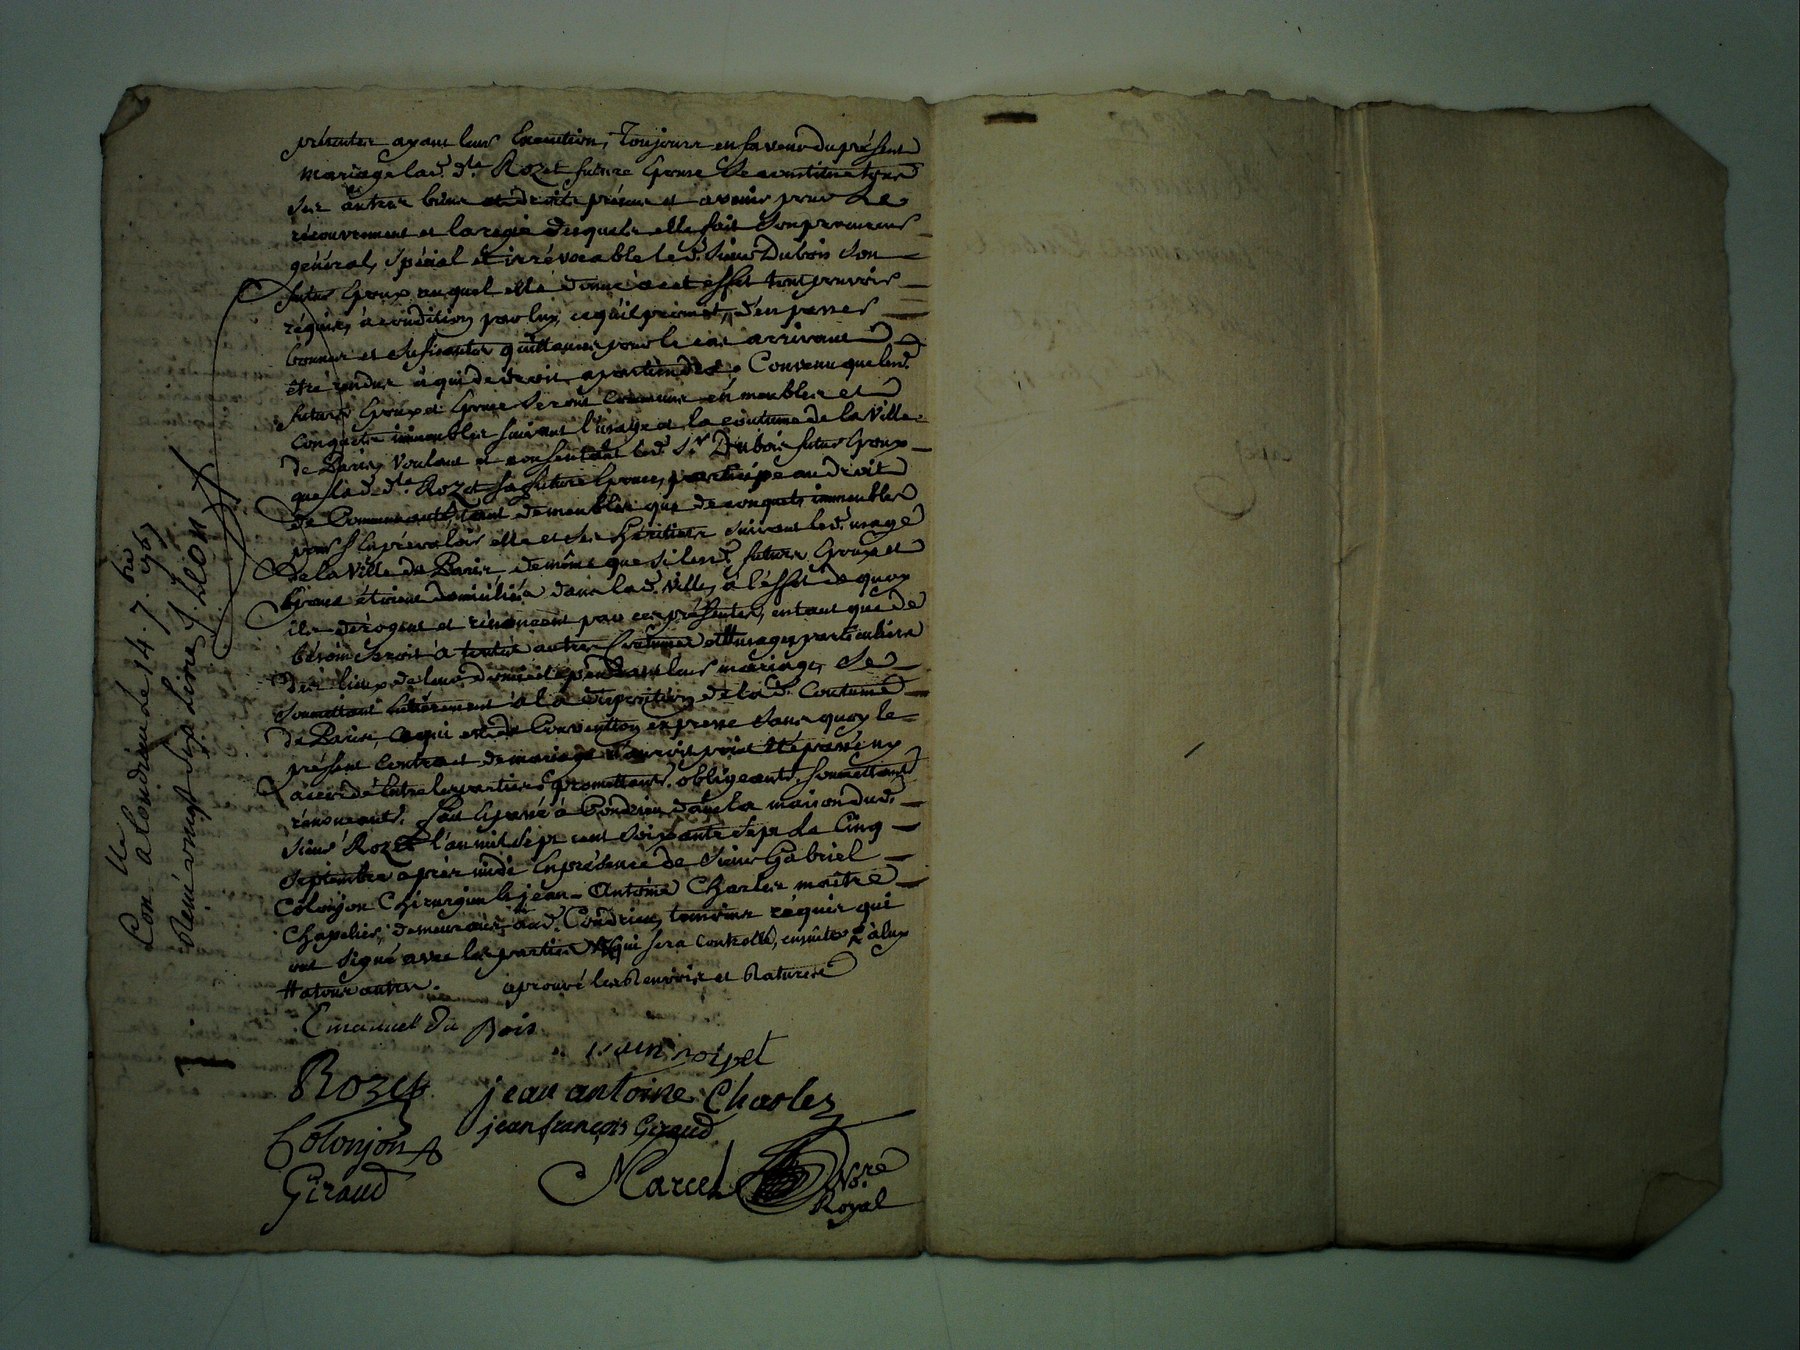 présenter ayant leur Execution, Toujours en faveur du présent
mariage lad. dlle Rozet future Epouse Se constitue tous
Ses autres biens et droits présens et avenir pour Le
récouvrement et la regie desquels elle fait Son procureur
général, Spécial et irrévocable led. Sieur Dubois Son
futur Epoux auquel elle donne a cet effet tout pouvoir
réquis, a condition par luy, ce qu'il promet, d'en passer
bonnes et Sufisantes quittances pour le cas arrivant
être rendus à qui de droit apartiendra. Convenu que lesd.
futurs Epoux et Epouse Seront Communs en meubles et
Conquets immeubles Suivant l'usage et la coutume de la Ville
de Paris, Voulant et consentant led. Sr. Dubois futur Epoux
que lad. dlle Rozet Sa future Epouse, participe au droit
de Communauté, tant de meubles que de conquets immeubles
pour S'en prévaloir elle et Ses Héritiers Suivant led. usage
de la Ville de Paris, de même que Si lesd. futurs Epoux et
Epouse étoient domiciliés dans lad. Ville, à l'effet de quoy
ils dérogent et rénoncent par ces présentes, entant que de
bésoin Seroit a toutes autres Coutumes et usages particuliers
des lieux de leur domicile pendant leur mariage, Se
Soumettant entiérement à la disposition de lad. Coutume
de Paris, Ce qui est de Convention expresse Sans quoy le
présent contract de mariage n'auroit point été passé ny
accordé entre les parties promettants, obligeants, Soumettants
rénonçants. fait & passé à Condrieu dans la maison dud.
Sieur Rozet l'an mil Sept cent Soixante Sept Le Cinq
Septembre aprés midi En présence de Sieur Gabriel
Colonjon Chirurgien & jean Antoine Charles maitre
Chapelier, demeurants aud. Condrieu, temoins réquis qui
ont Signé avec les parties qui Sera controllé, ensuite à lux
# a tous autres. aprouvé les Renvois et Ratures
Emanuel Du Bois
Rozet
jean antoine Charles
Colonjon
jean françois Giraud
Giraud
Marcel Nore
Royal
Con. lle a Condrieu le 14. 7.bre 1767
Reçu vingt Six livres